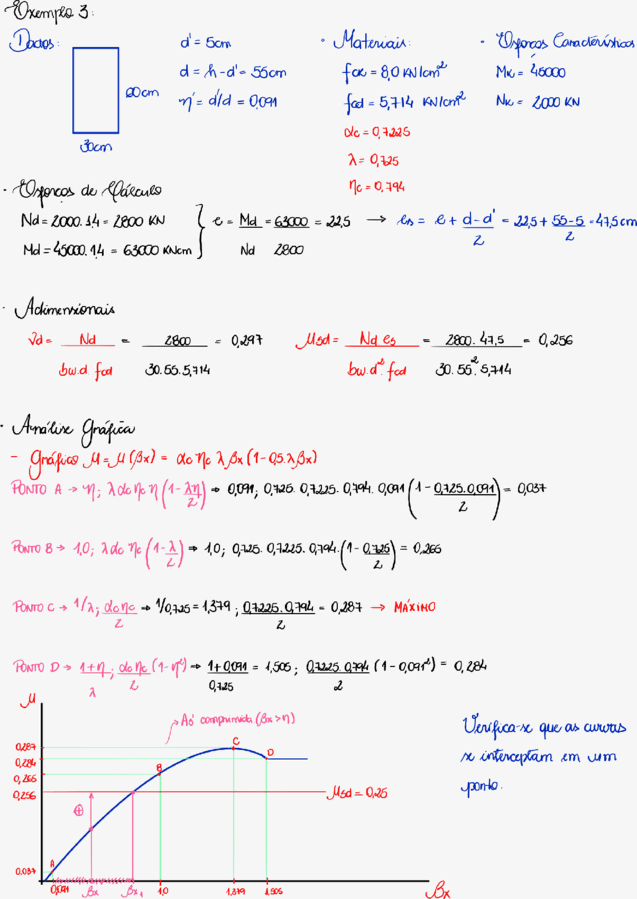 Exemplo 3:
Dados:
60cm
30cm
d' = 5cm
d = h - d' = 55cm
η' = d'/d = 0,091
· Materiais:
fck = 8,0 KN/cm²
fcd = 5,714 KN/cm²
αc = 0,7225
λ = 0,725
ηc = 0,794
· Esforços Característicos
Mk = 45000
Nk = 2000 KN
· Esforços de Cálculo
Nd = 2000.1,4 = 2800 KN
Md = 45000.1,4 = 63000 KNcm
e = Md/Nd = 63000/2800 = 22,5 → es = e + (d-d')/2 = 22,5 + (55-5)/2 = 47,5cm
· Adimensionais
νd = Nd/(bw.d.fcd) = 2800/(30.55.5,714) = 0,297
μsd = Nd es/(bw.d².fcd) = 2800.47,5/(30.55².5,714) = 0,256
· Análise Gráfica
- Gráfico μ = μ(βx) = αc ηc λ βx (1 - 0,5.λ βx)
PONTO A → η; λ αc ηc η (1 - λη/2) → 0,091; 0,725. 0,7225. 0,794. 0,091 (1 - 0,725.0,091/2) = 0,037
PONTO B → 1,0; λ αc ηc (1 - λ/2) → 1,0; 0,725. 0,7225. 0,794. (1 - 0,725/2) = 0,265
PONTO C → 1/λ; αc ηc/2 → 1/0,725 = 1,379; 0,7225. 0,794/2 = 0,287 → MÁXIMO
PONTO D → (1+η)/λ; αc ηc/2 (1-η²) → (1+0,091)/0,725 = 1,505; 0,7225.0,794/2 (1 - 0,091²) = 0,284
μ
As' comprimida (βx > η)
0,287
0,284
0,265
0,256
0,037
A
B
C
D
⊕
μsd = 0,25
0,091
βx
βx1
1,0
1,379
1,505
βx
Verifica-se que as curvas
se interceptam em um
ponto.